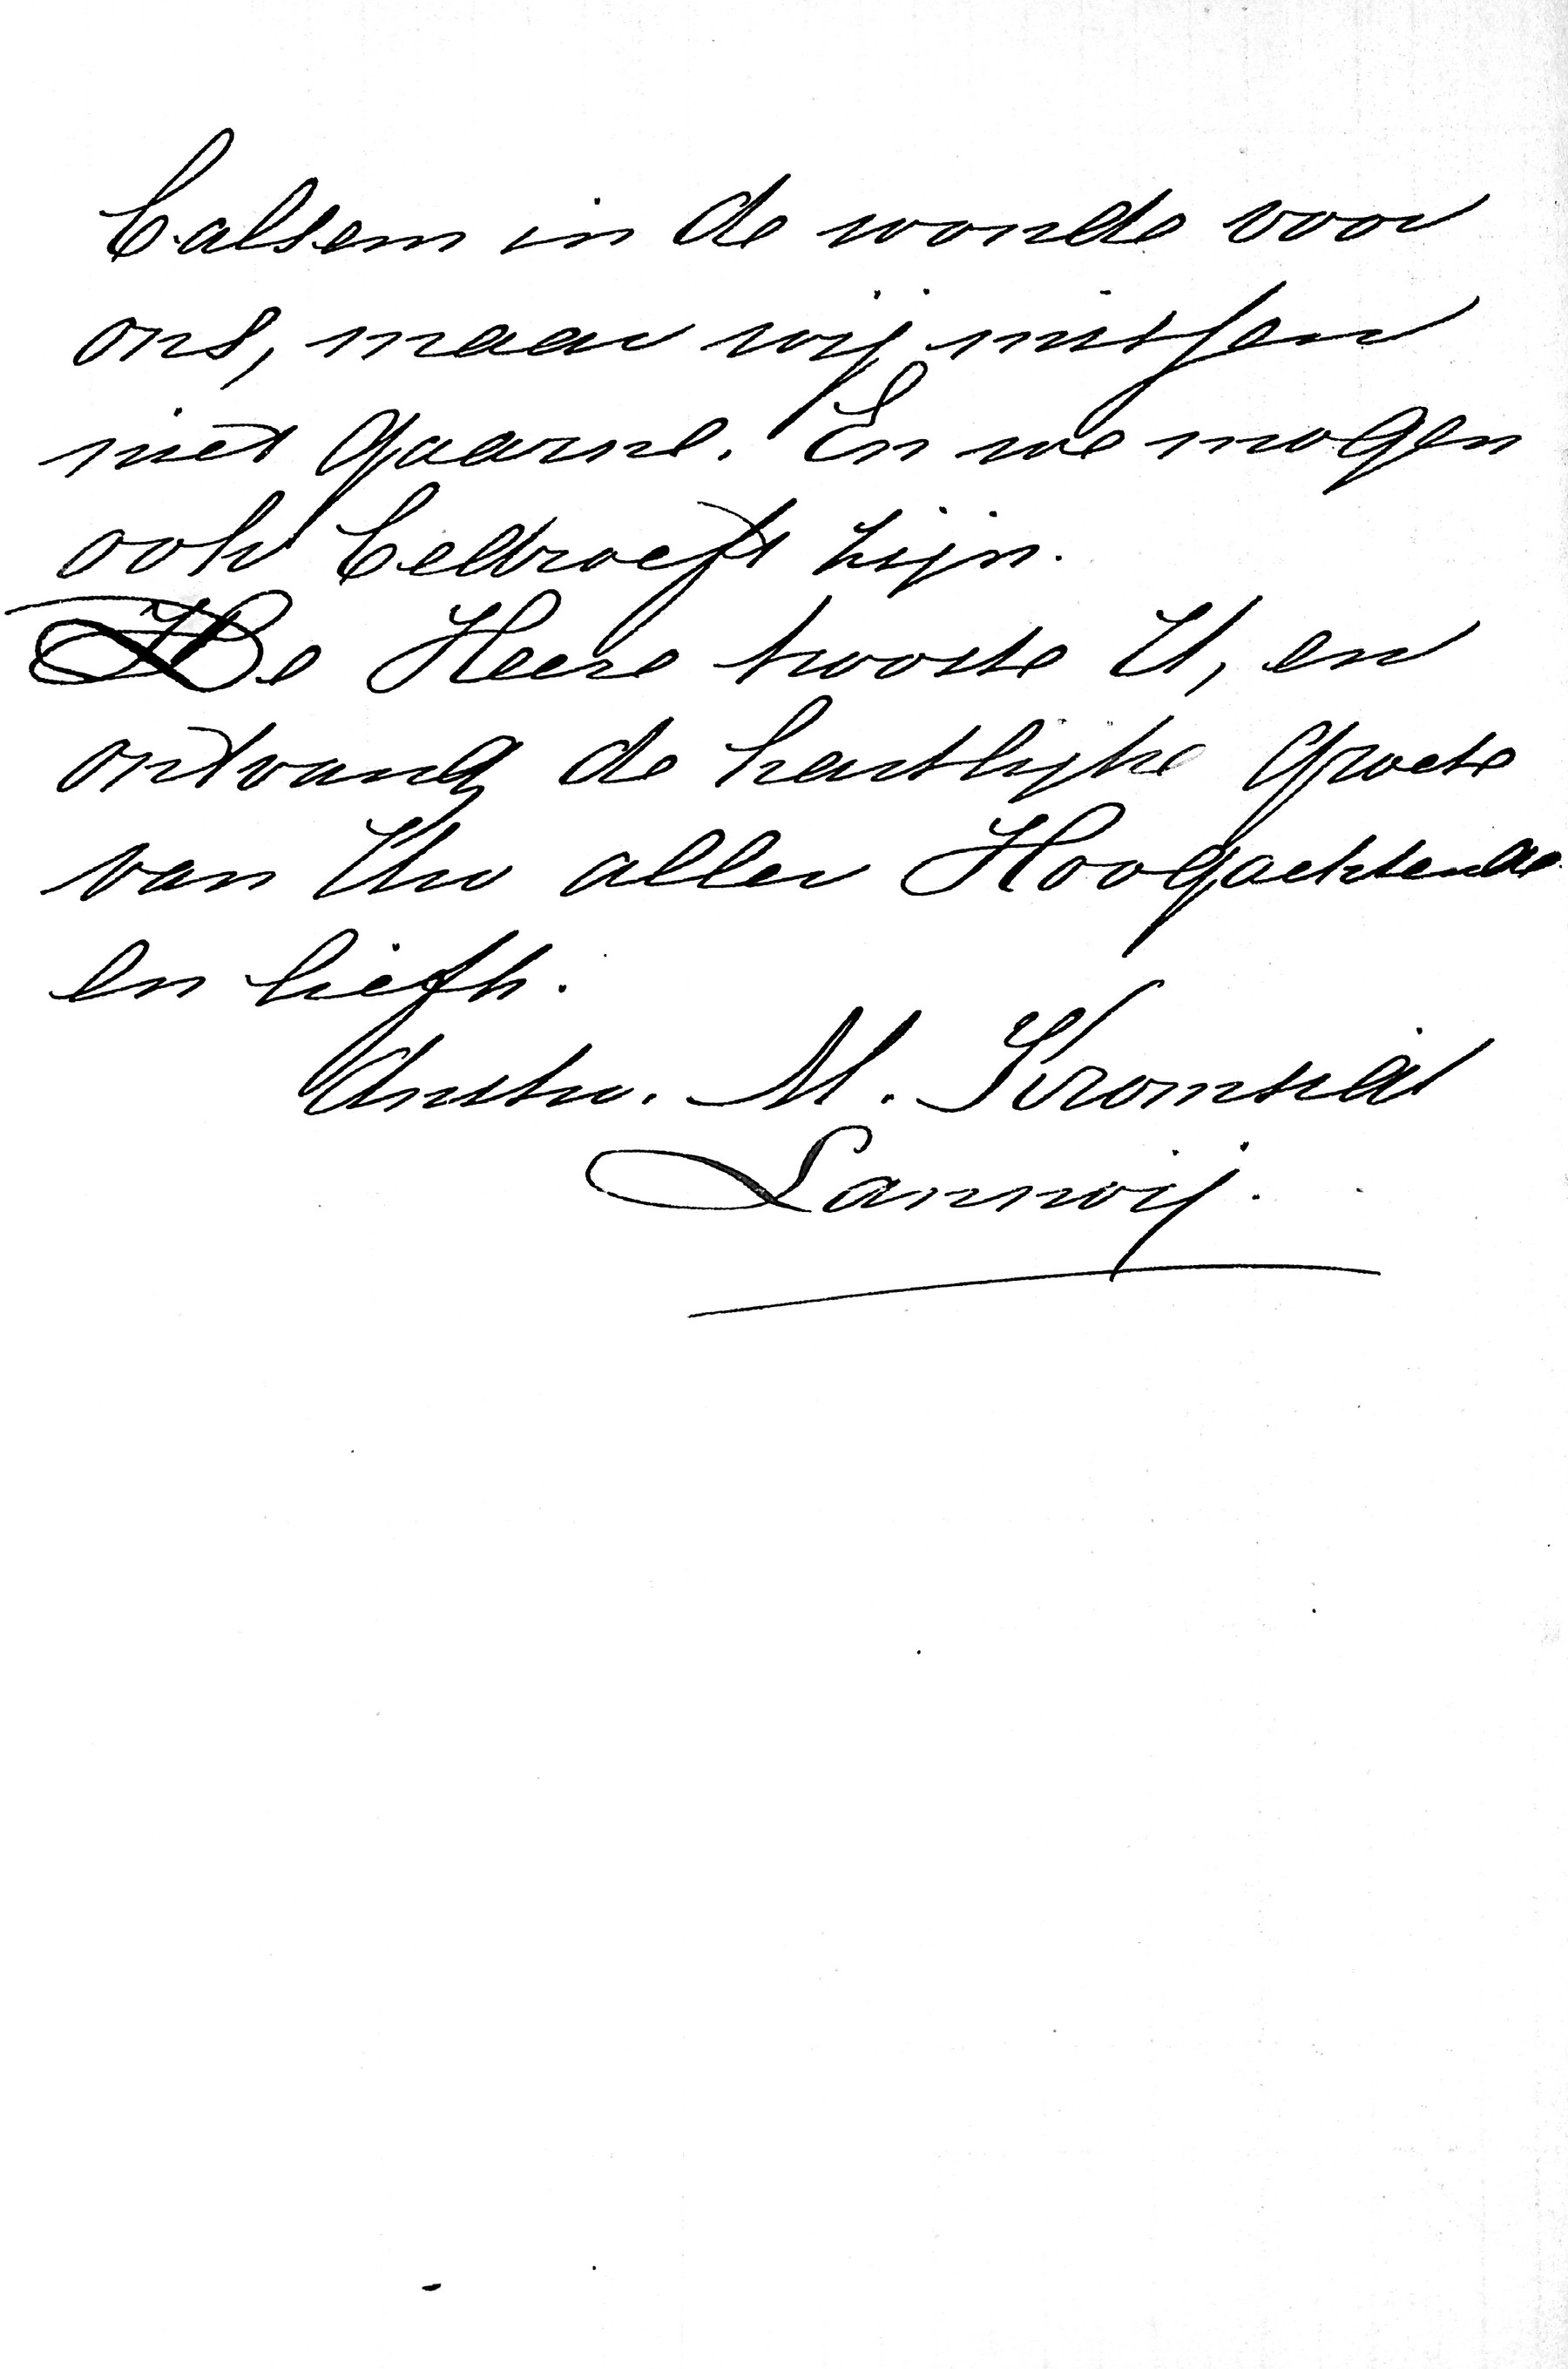 balsem in de wonde voor
ons, maar wij missen
niet gaarne. En we mogen
ook bedroeft zijn.
De Heere trooste U, en
ontvang de hartlijke groete
van Uw aller Hoogachtende
en liefh.
M.
Lannoij.